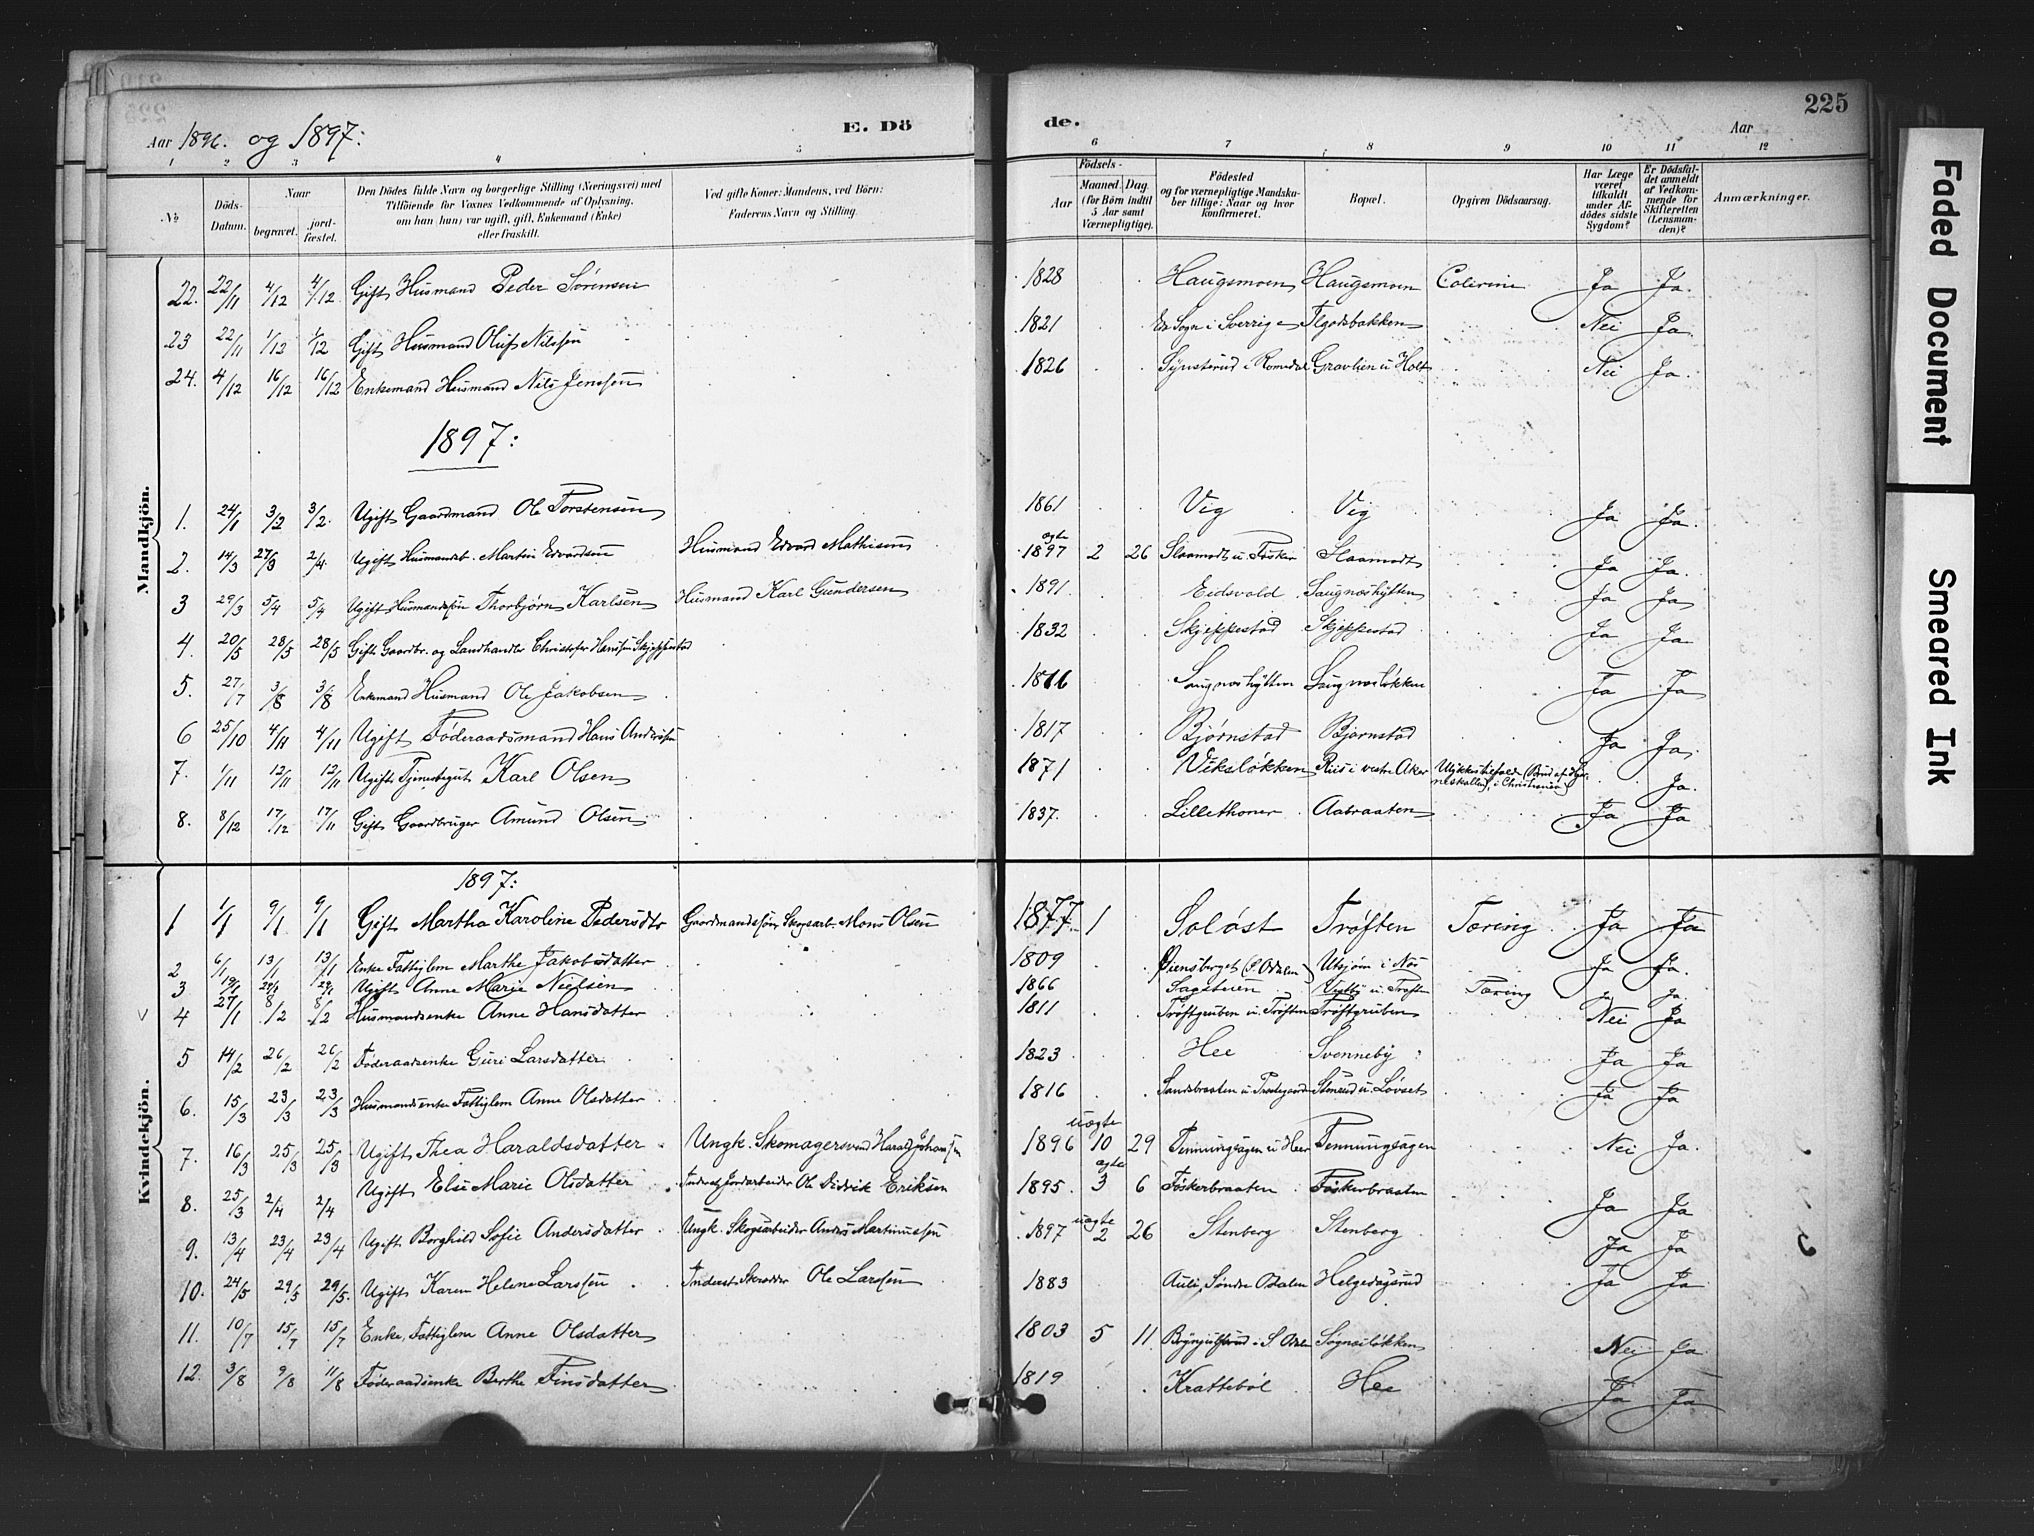 225
Aar 1896. og 1897: E. Dö de. Aar
1 2 3 4 5 6 7 8 9 10 11 12
No
Döds-Datum.
Naar
begravet.
jord-fæstet.
Den Dödes fulde Navn og borgerlige Stilling (Næringsvei) med
Tilföiende for Voxnes Vedkommende af Oplysning,
om han (hun) var ugift, gift, Enkemand (Enke)
eller fraskilt.
Ved gifte Koner: Mandens, ved Börn:
Faderens Navn og Stilling.
Födsels-
Aar
Maaned. Dag.
(for Börn indtil
5 Aar samt
Værnepligtige).
Födested
og for værnepligtige Mandskaber tillige: Naar og hvor
konfirmeret.
Bopæl.
Opgiven Dödsaarsag.
Har Læge
været
tilkaldt
under Afdödes sidste
Sygdom?
Er Dödsfaldet anmeldt
af Vedkommende for
Skifteretten
(Lensmanden)?
Anmærkninger.
Mandkjön.
22. 22/11 4/12 4/12 Gift Husmand Peder Sørensen 1828 Haugsmoen Haugsmoen Colerine Ja Ja.
23 22/11 1/12 1/12 Gift Husmand Oluf Nilssen 1821 Sogn i Sverrige Nei Ja.
24. 4/12 16/12 16/12 Enkemand Husmand Nils Jenssen 1826 Synsterud i Romedal Gravlien u Holt Nei Ja.
1897:
1. 24/1 3/2 3/2. Ugift Gaardmand Ole Torstensen 1861 Vig Vig Ja Ja.
2. 14/3 27/3 2/4. Ugift Husmandsb. Martin Edvardsen Husmand Edvard Mathisen ægte 1897 2 26 Slaamodt u. Fosker Slaamodt Ja Ja.
3 29/3 5/4 5/4 Ugift Husmandssøn Thorbjørn Karlsen Husmand Karl Gundersen 1891 Eidsvold Saugnæshytten Ja Ja
4. 20/5 28/5 28/5 Gift Gaardbr. og Landhandler Christofer Hanssen Skjeppestad 1832 Skjeppestad Skjeppestad Ja Ja
5. 27/7 3/8 3/8 Enkemand Husmand Ole Jakobsen 1816 Saugnæshytten Saugnæsløkken Ja Ja
6 25/10 4/11 4/11 Ugift Føderaadsmand Hans Anderssen 1817 Bjørnstad Bjørnstad Ja Ja
7. 1/11 12/11 12/11 Ugift Tjenestegut Karl Olsen 1871 Viksløkken Riis i vestre Aker Ulykkestilfælde (Brud af Hjerneskallen), i Christiania Ja.
8. 8/12 17/12 17/11 Gift Gaardbruger Amund Olsen 1837. Lillethoner Aabraaten Ja Ja
Kvindekjön.
1897:
1 1/1 9/1 9/1 Gift Martha Karoline Pedersdtr Gaardmandssøn Skogsarb. Mons Olsen 1877 1 Soløst Trøften Tæring Ja Ja
2 6/1 13/1 13/1 Enke Fattiglem Marthe Jakobsdatter 1809 Øiensberget (S. Odalen) Utsjøm i Næs Ja Ja.
3 19/1 29/1 29/1 Ugift Anne Marie Nielsen 1866 Sagstuen Vestby u. Trøften Tæring Ja Ja.
4 27/1 8/2 8/2 Husmandsenke Anne Hansdatter 1811 Trøftgruben u. Trøften Trøftgruben Nei Ja
5 14/2 26/2 26/2 Føderaadsenke Guri Larsdatter 1823 Hee Svenneby Ja Ja
6. 15/3 23/3 23/3 Husmandsenke Fattiglem Anne Olsdatter 1816 Sandsbraaten u Ja Ja
7. 16/3 25/3 25/3 Ugift Thea Haraldsdatter Ungk. Skomagersvend Harald Johansen uægte 1896 10 29 Tenningsagen u Heer Tenningsagen Nei Ja.
8. 25/3 2/4 2/4 Ugift Else Marie Olsdatter Inderst Jordarbeider Ole Didrik Eriksen ægte 1895 3 6 Foskerbraaten Foskerbraaten Ja Ja
9. 13/4 23/4 23/4 Ugift Borghild Sofie Andersdatter Ungk. Skogsarbeider Anders Martinussen uægte 1897 2 26 Stenberg Stenberg Ja Ja
10. 24/5 29/5 29/5. Ugift Karen Helene Larssen Inderst Skrædder Ole Larssen 1883 Auli, Søndre Odalen Helgedagsrud Ja Ja
11. 10/7 15/7 15/7 Enke, Fattiglem Anne Olsdatter 1803 5 11. Brynjulfsrud i S. Odalen Sognæsløkken Nei Ja
12. 3/8 9/8 11/8 Føderaadsenke Berthe Finsdatter 1819 Krattebøl Hee Ja Ja
Faded Document
Smeared Ink